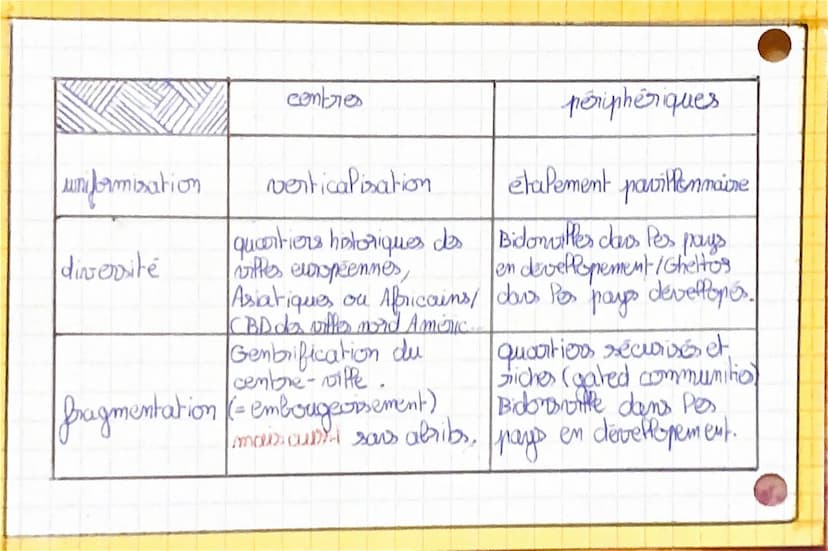 centres
périphériques
uniformisation
verticalisation
étalement pavillonnaire
diversité
quartiers historiques des
villes européennes,
Asiatiques ou Africains/
CBD des villes nord Améric.
Bidonvilles dans les pays
en développement/Ghettos
dans les pays développés.
fragmentation
Gentrification du
centre-ville.
(= embourgeoisement)
mais aussi sans abribs.
quartiers sécurisés et
riches (gated communities)
Bidonsville dans les
pays en développement.